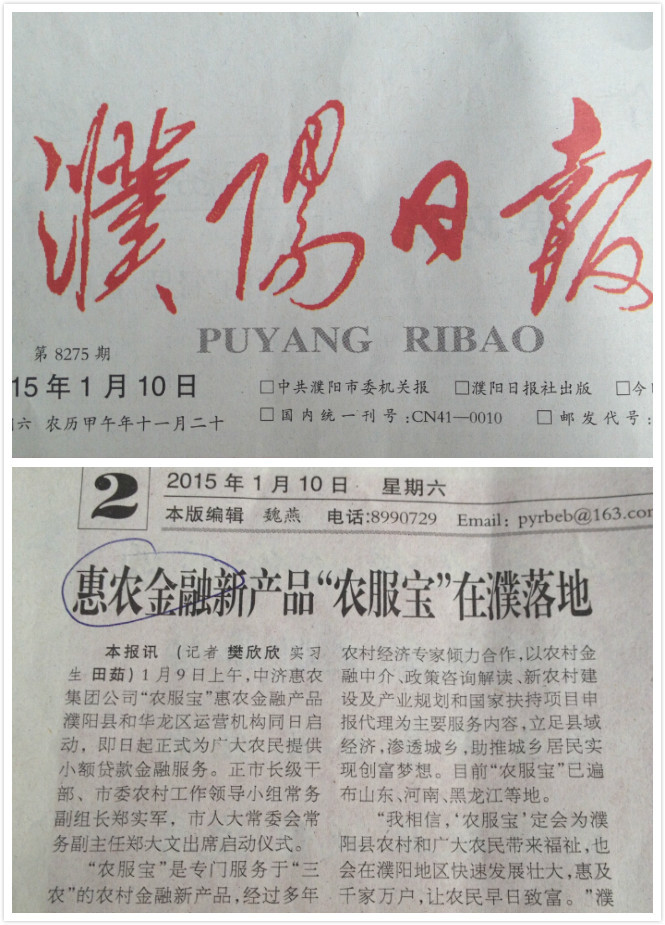 濮阳日报
PUYANG RIBAO
第 8275 期
15 年 1 月 10 日
□中共濮阳市委机关报 □濮阳日报社出版 □今
六 农历甲午年十一月二十
□国内统一刊号:CN41—0010 □邮发代号:
2
2015 年 1 月 10 日 星期六
本版编辑 魏燕 电话:8990729 Email: pyrbeb@163.com
惠农金融新产品“农服宝”在濮落地
本报讯 (记者 樊欣欣 实习
生 田茹) 1 月 9 日上午,中济惠农
集团公司“农服宝”惠农金融产品
濮阳县和华龙区运营机构同日启
动，即日起正式为广大农民提供
小额贷款金融服务。正市长级干
部、市委农村工作领导小组常务
副组长郑实军，市人大常委会常
务副主任郑大文出席启动仪式。
“农服宝”是专门服务于“三
农”的农村金融新产品,经过多年
农村经济专家倾力合作,以农村金
融中介、政策咨询解读、新农村建
设及产业规划和国家扶持项目申
报代理为主要服务内容,立足县域
经济,渗透城乡,助推城乡居民实
现创富梦想。目前“农服宝”已遍
布山东、河南、黑龙江等地。
“我相信,‘农服宝’定会为濮
阳县农村和广大农民带来福祉,也
会在濮阳地区快速发展壮大,惠及
千家万户,让农民早日致富。”濮